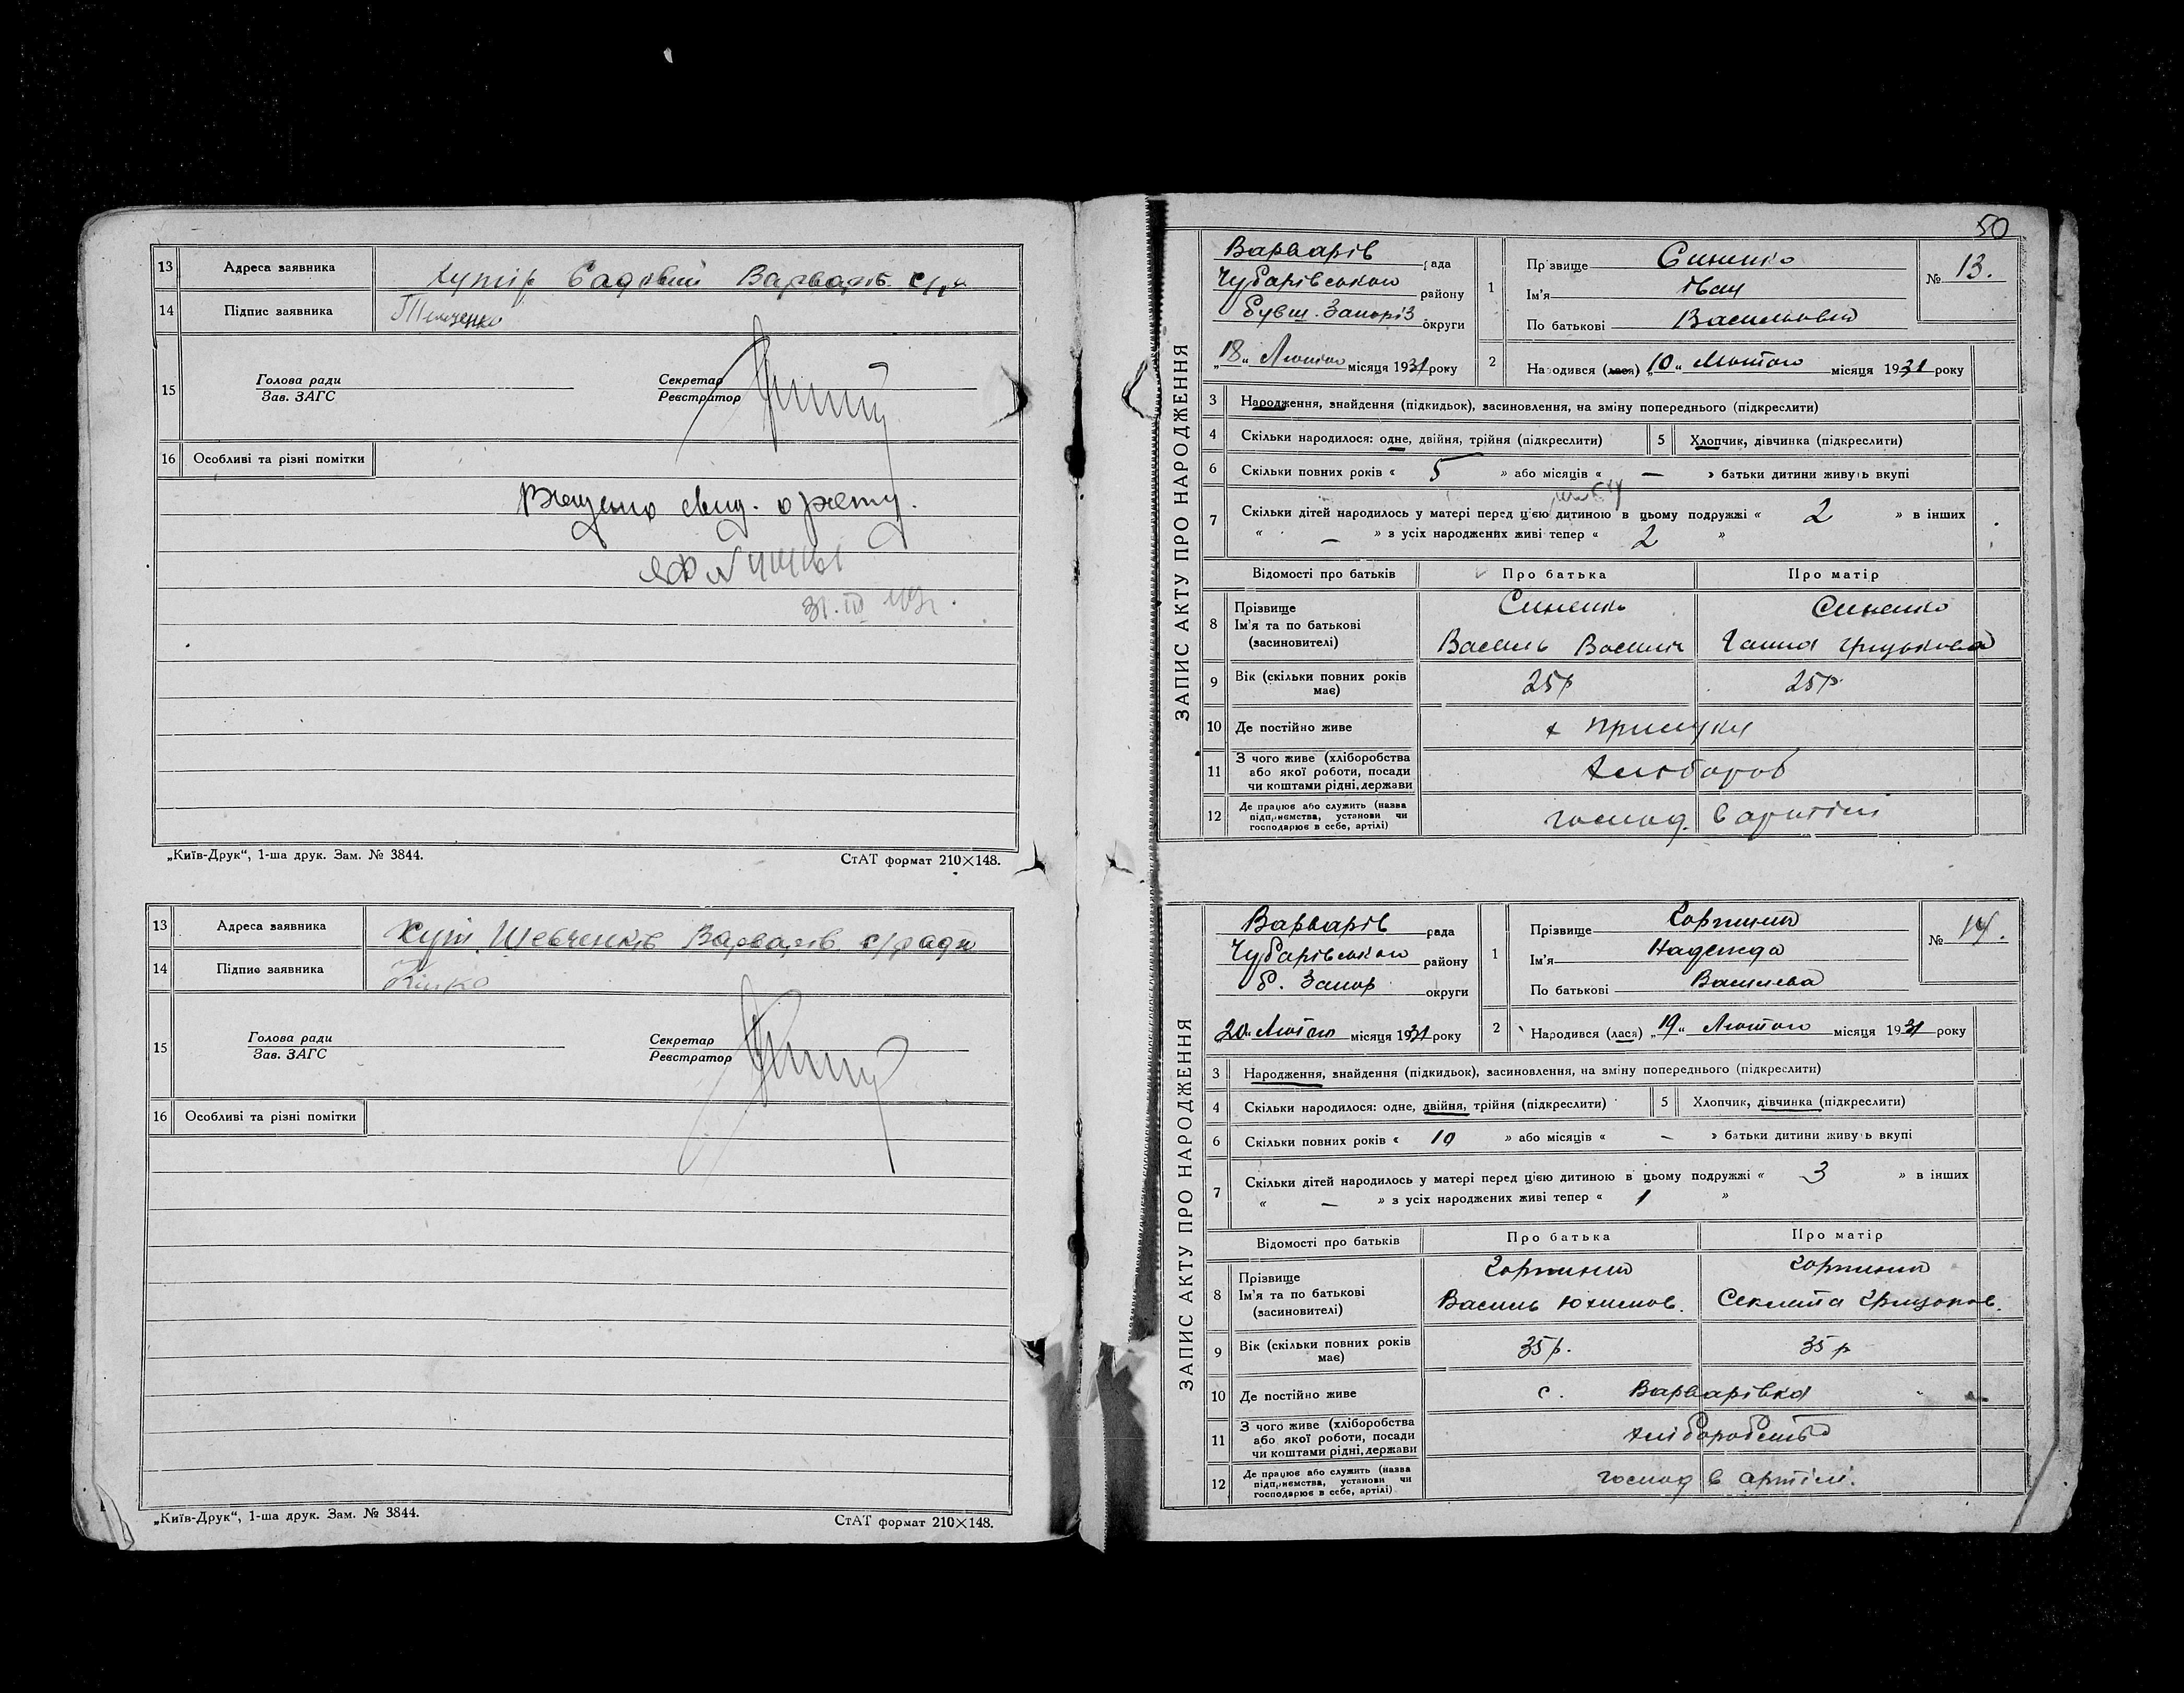 13 Адреса заявника Хутір Садовий Варварів. с/р
14 Підпис заявника Темченко
15 Голова ради
Зав. ЗАГС
Секретар
Реєстратор
16 Особливі та різні помітки
Видано свид. о рожд.
31. III
„Київ-Друк“, 1-ша друк. Зам. № 3844. СтАТ формат 210×148.
13 Адреса заявника Хут. Шевченків Варварів. с/ради
14 Підпис заявника
15 Голова ради
Зав. ЗАГС
Секретар
Реєстратор
16 Особливі та різні помітки
„Київ-Друк“, 1-ша друк. Зам. № 3844. СтАТ формат 210×148.
50
ЗАПИС АКТУ ПРО НАРОДЖЕННЯ
Варварів рада
Чубарівського району
бувш. Запоріз округи
„18„ Лютого місяця 1931 року
1 Прізвище Синенко
Ім'я Іван
По батькові Васильович
№ 13.
2 Народився (лася) „10„ Лютого місяця 1931 року
3 Народження, знайдення (підкидьок), засиновлення, на зміну попереднього (підкреслити)
4 Скільки народилося: одне, двійня, трійня (підкреслити) 5 Хлопчик, дівчинка (підкреслити)
6 Скільки повних років « 5 » або місяців « — » батьки дитини живуть вкупі
7 Скільки дітей народилось у матері перед цією дитиною в цьому подружжі « 2 » в інших
« — » з усіх народжених живі тепер « 2 »
Відомості про батьків Про батька Про матір
8 Прізвище Синенко Синенко
Ім'я та по батькові Василь Василіч Ганна Грицькова
(засновителі)
9 Вік (скільки повних років має) 25р 25р
10 Де постійно живе х Прилуки
11 З чого живе (хліборобства або якої роботи, посади чи коштами рідні, держави Хлібороб
12 Де працює або служить (назва підприємства, установи чи господарює в себе, артілі) господ. в артілі
ЗАПИС АКТУ ПРО НАРОДЖЕННЯ
Варварів рада
Чубарівського району
б. Запор округи
20„ Лютого місяця 1931 року
1 Прізвище
Ім'я Надежда
По батькові Васильева
№ 14.
2 Народився (лася) „19„ Лютого місяця 1931 року
3 Народження, знайдення (підкидьок), засиновлення, на зміну попереднього (підкреслити)
4 Скільки народилося: одне, двійня, трійня (підкреслити) 5 Хлопчик, дівчинка (підкреслити)
6 Скільки повних років « 10 » або місяців « — » батьки дитини живуть вкупі
7 Скільки дітей народилось у матері перед цією дитиною в цьому подружжі « 3 » в інших
« — » з усіх народжених живі тепер « 1 »
Відомості про батьків Про батька Про матір
8 Прізвище
Ім'я та по батькові Василь Юхимов. Секлита Григоров.
(засиновителі)
9 Вік (скільки повних років має) 35р. 35р
10 Де постійно живе с. Варварівка
11 З чого живе (хліборобства або якої роботи, посади чи коштами рідні, держави Хліборобство
12 Де працює або служить (назва підприємства, установи чи господарює в себе, артілі) господ в артілі.